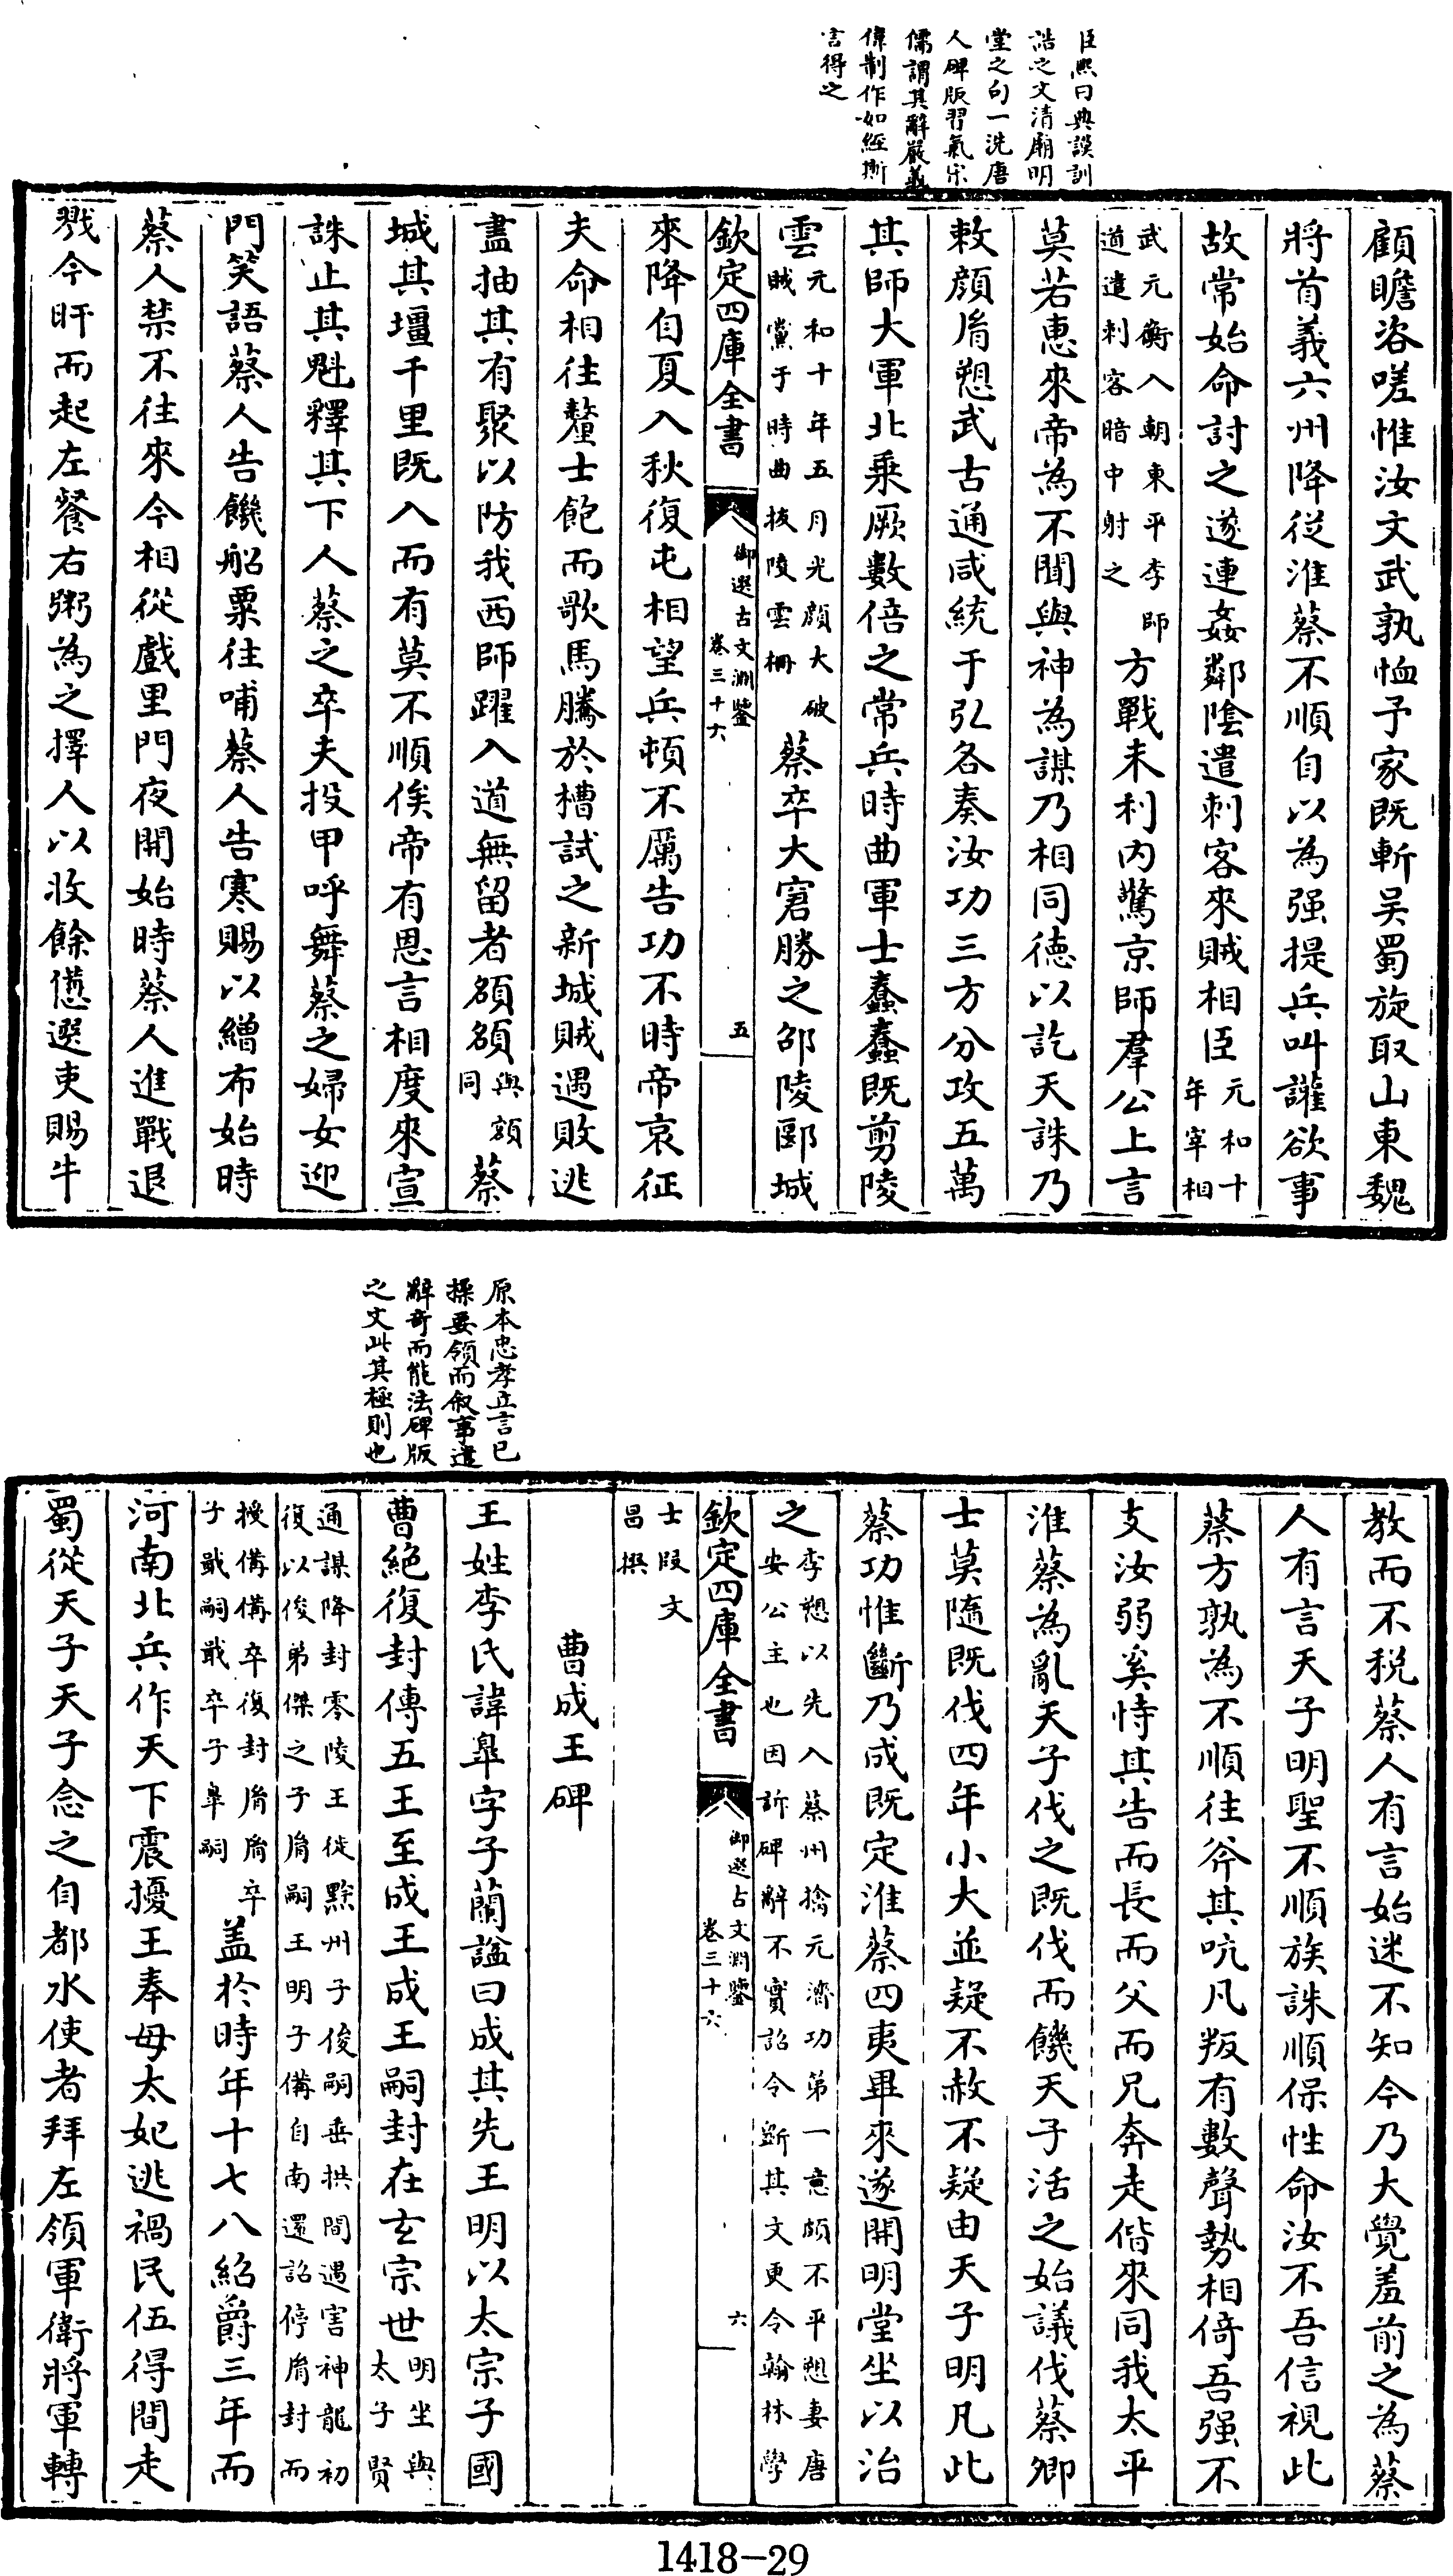 臣熙曰典謨訓
誥之文清廟明
堂之句一洗唐
人碑版習氣宋
儒謂其辭嚴義
偉制作如經斯
言得之
顧瞻咨嗟惟汝文武孰恤予家既斬吳蜀旋取山東魏
將首義六州降從淮蔡不順自以為强提兵叫讙欲事
故常始命討之遂連姦鄰隂遣刺客來賊相臣元和十年宰相
武元衡入朝東平李師道遣刺客暗中射之方戰未利内驚京師羣公上言
莫若惠來帝為不聞與神為謀乃相同德以訖天誅乃
敕顔胤愬武古通咸統于弘各奏汝功三方分攻五萬
其師大軍北乗厥數倍之常兵時曲軍士蠢蠢既剪陵
雲元和十年五月光顔大破賊黨于時曲拔陵雲柵蔡卒大窘勝之邵陵郾城
欽定四庫全書
御選古文淵鑒
卷三十六
五
來降自夏入秋復屯相望兵頓不厲告功不時帝哀征
夫命相往釐士飽而歌馬騰於槽試之新城賊遇敗逃
盡抽其有聚以防我西師躍入道無留者頟頟與額同蔡
城其壃千里既入而有莫不順俟帝有恩言相度來宣
誅止其魁釋其下人蔡之卒夫投甲呼舞蔡之婦女迎
門笑語蔡人告饑船粟往哺蔡人告寒賜以繒布始時
蔡人禁不往來今相從戲里門夜開始時蔡人進戰退
戮今旰而起左飱右粥為之擇人以收餘憊選吏賜牛
原本忠孝立言已
操要領而叙事遣
辭奇而能法碑版
之文此其極則也
教而不税蔡人有言始迷不知今乃大覺羞前之為蔡
人有言天子明聖不順族誅順保性命汝不吾信視此
蔡方孰為不順往斧其吭凡叛有數聲勢相倚吾强不
支汝弱奚恃其告而長而父而兄奔走偕來同我太平
淮蔡為亂天子伐之既伐而饑天子活之始議伐蔡卿
士莫隨既伐四年小大並疑不赦不疑由天子明凡此
蔡功惟斷乃成既定淮蔡四夷畢來遂開明堂坐以治
之李愬以先入蔡州擒元濟功弟一意頗不平愬妻唐安公主也因訴碑辭不實詔令斵其文更令翰林學
欽定四庫全書
御選古文淵鑒
卷三十六
六
士段文昌撰
曹成王碑
王姓李氏諱臯字子蘭謚曰成其先王明以太宗子國
曹絶復封傳五王至成王成王嗣封在玄宗世明坐與太子賢
通謀降封零陵王徙黔州子俊嗣垂拱間遇害神龍初復以俊弟傑之子胤嗣王明子備自南還詔停胤封而
授備備卒復封胤胤卒子戢嗣戢卒子臯嗣盖於時年十七八紹爵三年而
河南北兵作天下震擾王奉母太妃逃禍民伍得間走
蜀從天子天子念之自都水使者拜左領軍衛將軍轉
1418-29